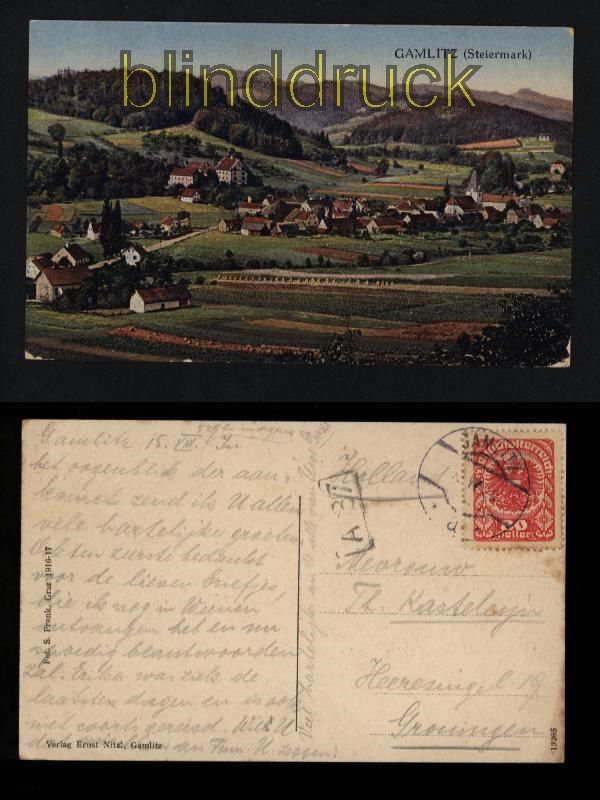 GAMLITZ (Steiermark)
blinddruck
Gamlitz 15. VIII. In
het oogenblik der aan-
komst zend ik U allen
vele hartelijke groeten
Ook ten zeerste bedankt
voor de lieven briefjes,
die ik nog in Weenen
ontvangen heb en nu
spoedig beantwoorden
zal. Erika was ziek de
laatsten dagen en is ook
niet
Wilt U
an Fam.
Holland
A
Mevrouw
Th. Kasteleyn
Heeresingel 19
Groningen
Deutschösterreich
Heller
Phot. S. Frank, Graz 1916-17
Verlag Ernst Nitzl, Gamlitz
13265